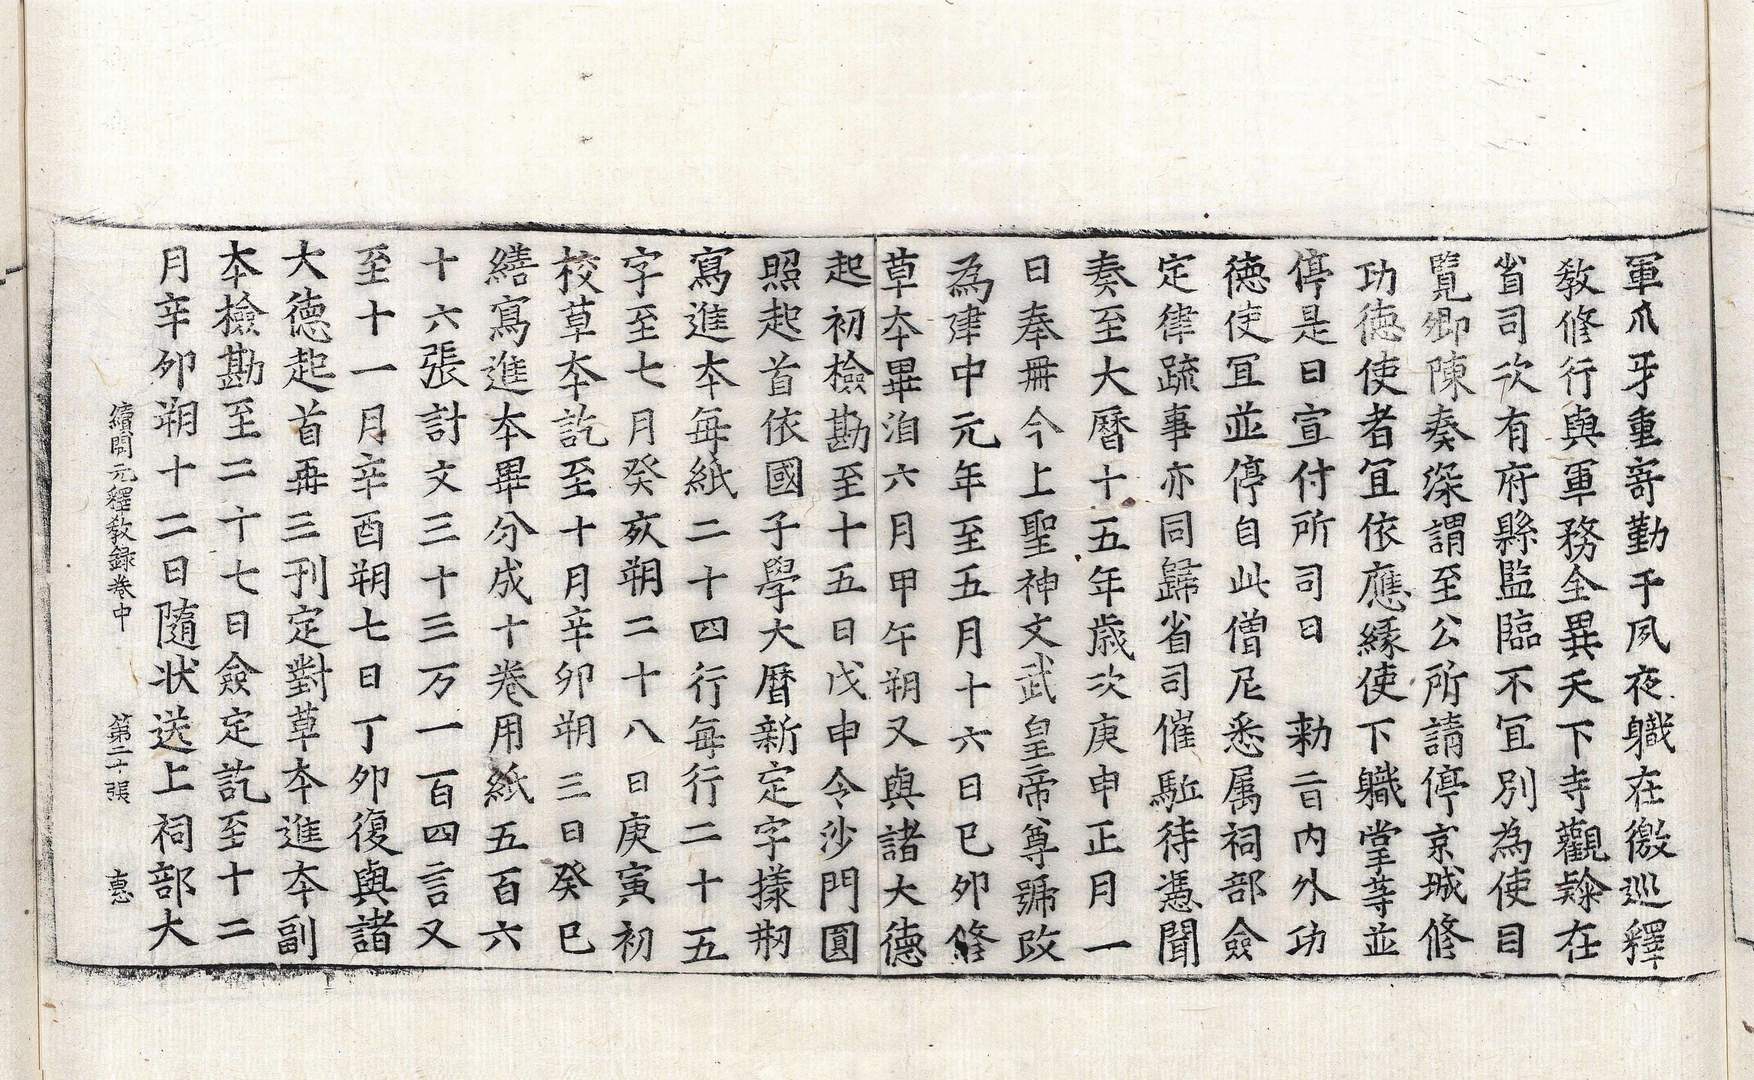 軍爪牙重寄勤于夙夜職在徼巡釋
教修行與軍務全異天下寺觀隷在
省司次有府縣監臨不冝別為使目
覽卿陳奏深謂至公所請停京城修
功德使者冝依應緣使下職掌等並
停是日宣付所司曰　勅旨內外功
德使冝並停自此僧尼悉属祠部僉
定律疏事亦同歸省司催駈待憑聞
奏至大曆十五年歳次庚申正月一
日奉冊今上聖神文武皇帝尊號改
為建中元年至五月十六日巳卯修
草本畢洎六月甲午朔又與諸大德
起初檢勘至十五日戊申令沙門圓
照起首依國子學大曆新定字㨾剏
寫進本每紙二十四行每行二十五
字至七月癸亥朔二十八日庚寅初
校草本訖至十月辛卯朔三日癸巳
繕寫進本畢分成十卷用紙五百六
十六張計文三十三万一百四言又
至十一月辛酉朔七日丁卯復與諸
大德起首再三刊定對草本進本副
本檢勘至二十七日僉定訖至十二
月辛卯朔十二日隨狀送上祠部大
續開元釋教録卷中　第二十張　惠